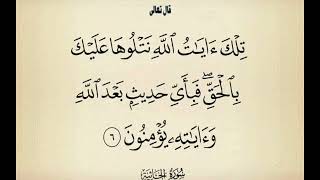 قال تعالى
تِلْكَ ءَايَٰتُ ٱللَّهِ نَتْلُوهَا عَلَيْكَ
بِٱلْحَقِّ ۖ فَبِأَىِّ حَدِيثٍۭ بَعْدَ ٱللَّهِ
وَءَايَٰتِهِۦ يُؤْمِنُونَ ٦
سُورَةُ الجَاثِيَةِ